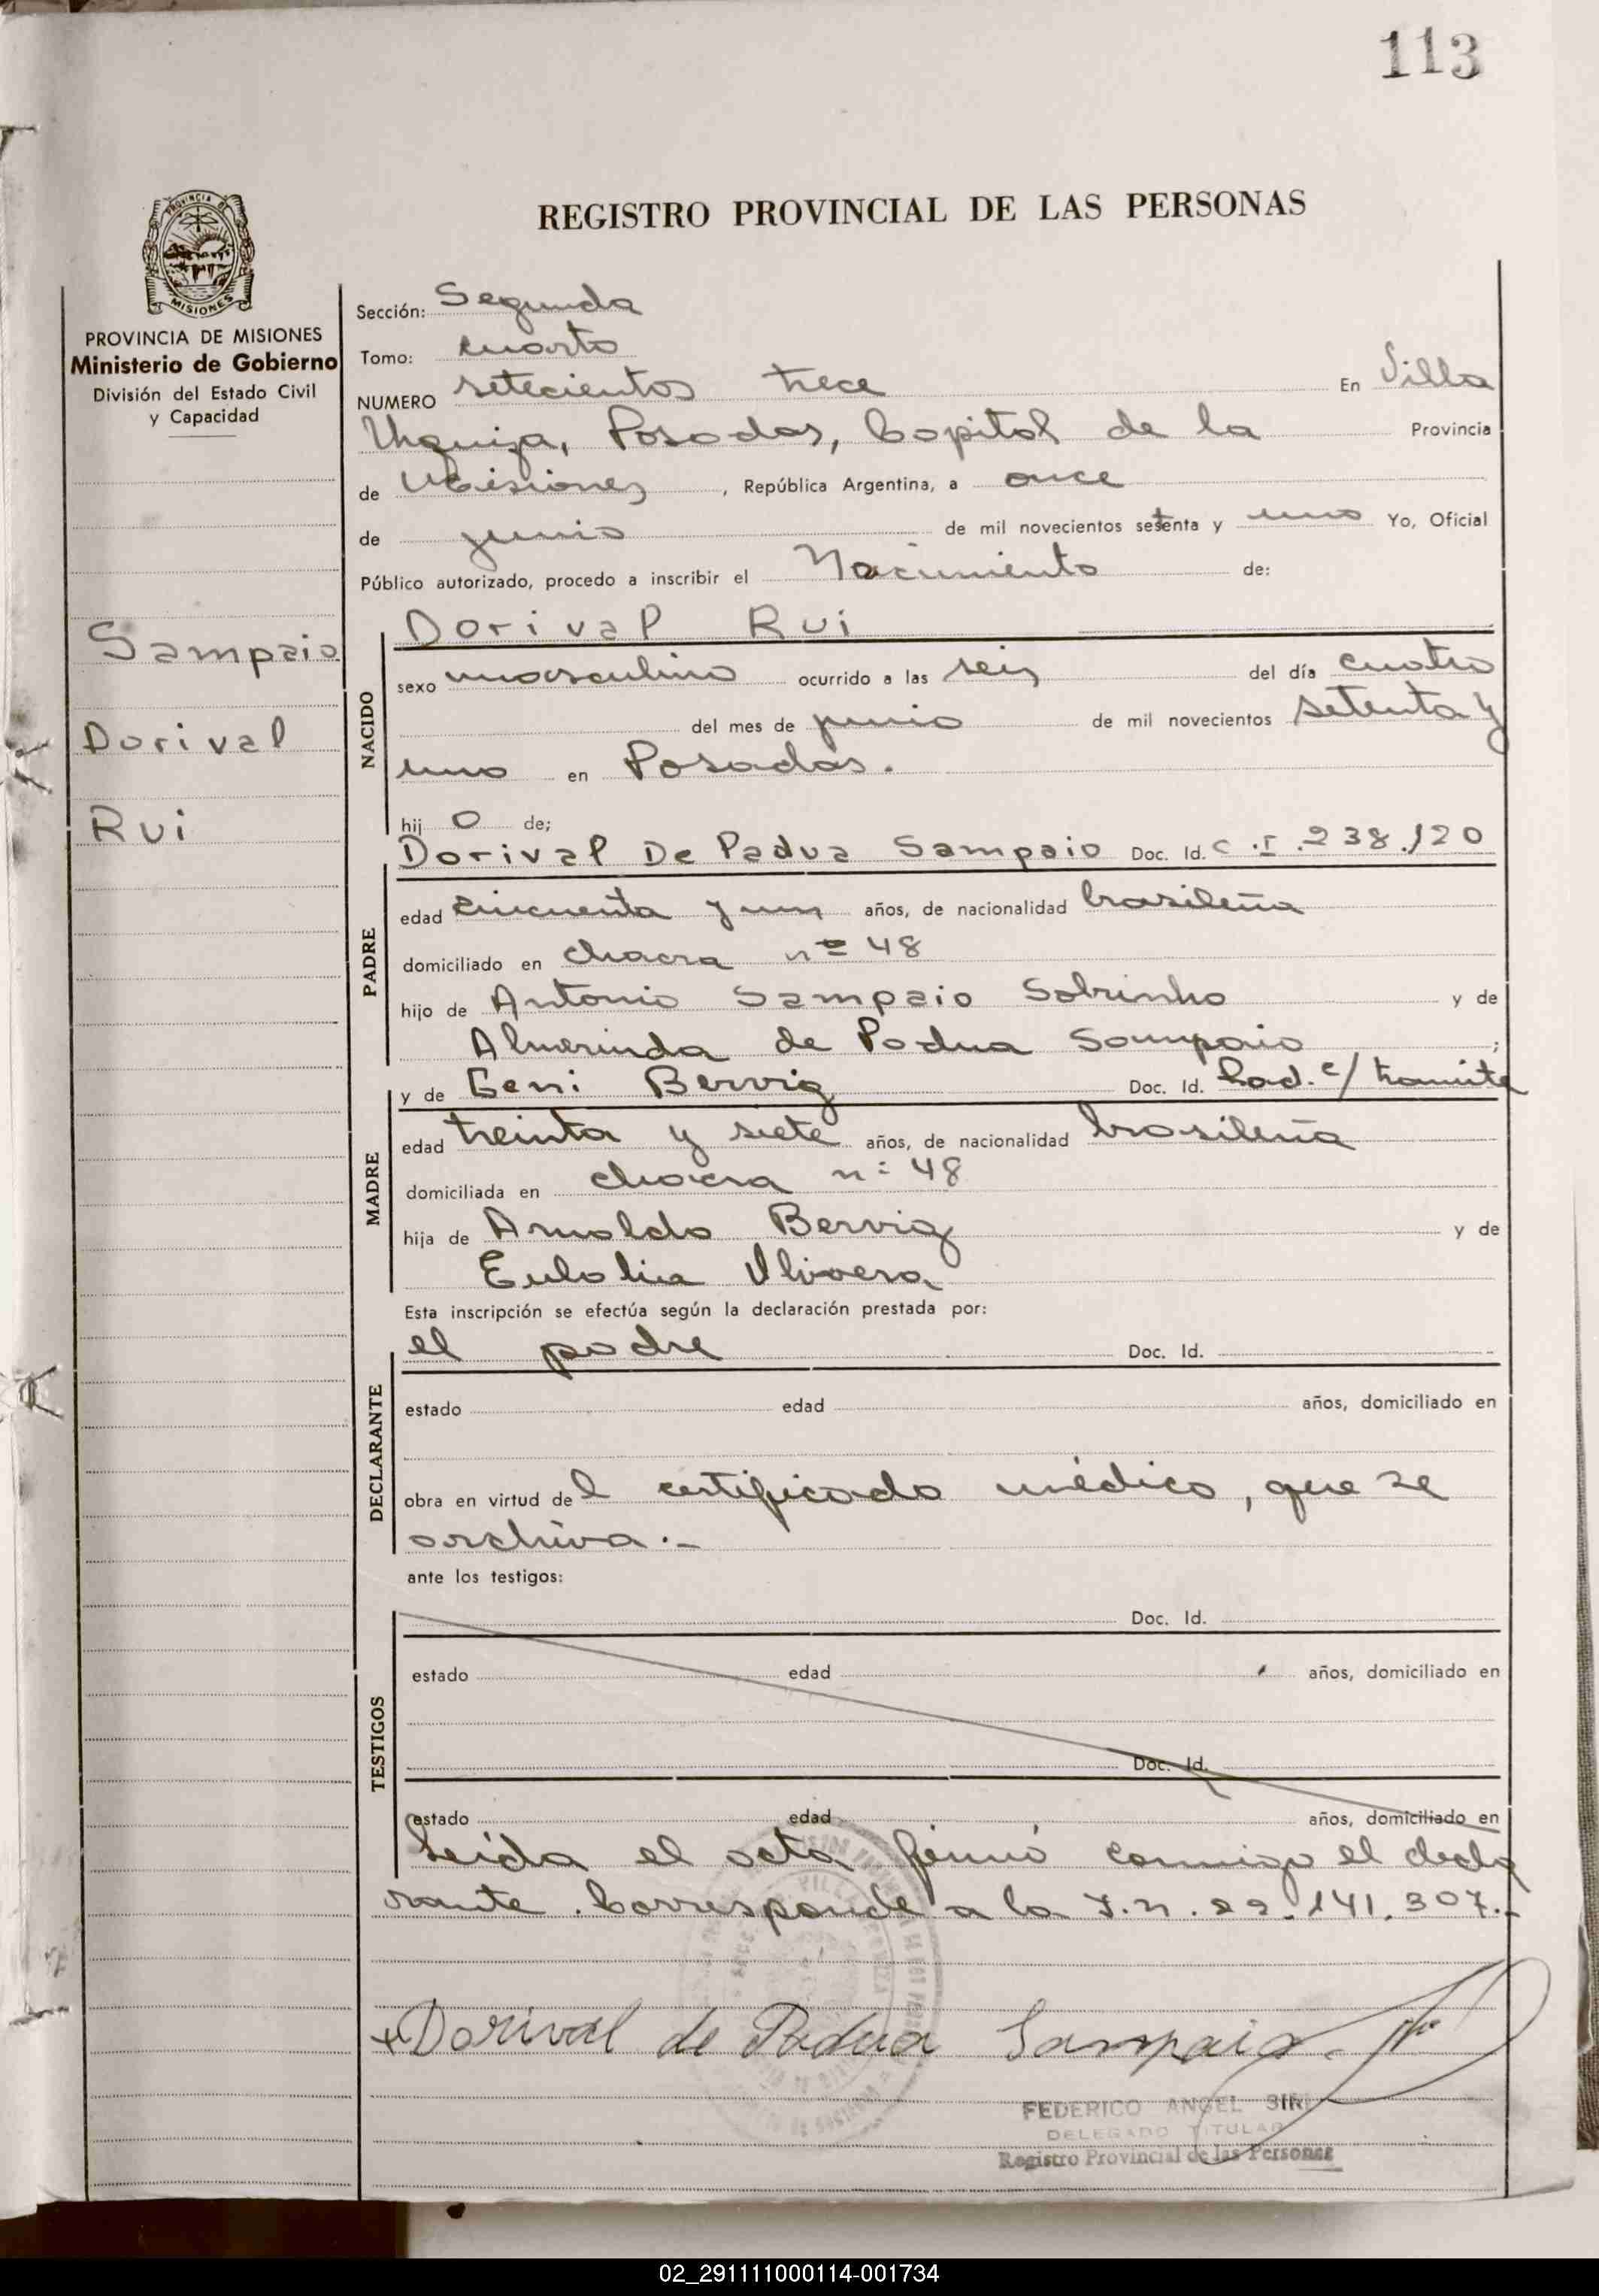 113
REGISTRO PROVINCIAL DE LAS PERSONAS
PROVINCIA DE
MISIONES
PROVINCIA DE MISIONES
Ministerio de Gobierno
División del Estado Civil
y Capacidad
Sampaio
Dorival
Rui
Sección: Segunda
Tomo: cuarto
NUMERO setecientos trece En Villa
Urquiza, Posadas, Capital de la Provincia
de Misiones, República Argentina, a once
de junio de mil novecientos setenta y uno Yo, Oficial
Público autorizado, procedo a inscribir el Nacimiento de:
Dorival Rui
NACIDO
sexo masculino ocurrido a las seis del día cuatro
del mes de junio de mil novecientos setenta y
uno en Posadas.
hijo de;
Dorival De Padua Sampaio Doc. Id. C.I. 238.120
PADRE
edad cincuenta y un años, de nacionalidad brasileña
domiciliado en chacra nº 48
hijo de Antonio Sampaio Sobrinho y de
Almerinda de Padua Sampaio;
y de Geni Bervig Doc. Id. Rad. c/ tramite
MADRE
edad treinta y siete años, de nacionalidad brasileña
domiciliada en chacra n: 48
hija de Arnoldo Bervig y de
Eulolia Olivera
Esta inscripción se efectúa según la declaración prestada por:
el padre Doc. Id.
DECLARANTE
estado edad años, domiciliado en
obra en virtud del certificado médico, que se
archiva.-
ante los testigos:
Doc. Id.
TESTIGOS
estado edad años, domiciliado en
Doc. Id.
estado edad años, domiciliado en
Leída el acta firmó conmigo el decla
rante. Corresponde a la I.n. 22.141.307.-
+Dorival de Padua Sampaio.
FEDERICO ANGEL SIRI
DELEGADO TITULAR
Registro Provincial de las Personas
02_291111000114-001734